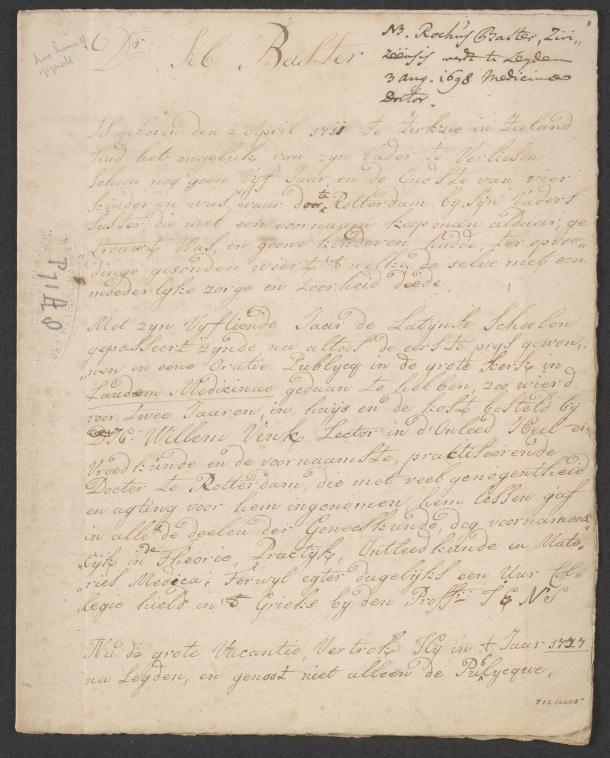 Dr. Job Baster
NB. Rochus Baster, Ziri-
zeensis werdt te Leyden
3 aug. 1698 Medicinae
Doctor.
Is geboren den 2 April 1711 te Zirkzee in Zeeland
had het ongeluk van zyn Vader te Verliesen
schoon nog geen Vyf Jaar en de Oucste van vier
kinderen was, waar door te Rotterdam by Syn Vaders
suster die met een voornaam koopman aldaar, ge-
trouwt Was, en geene kinderen hadde, ter opvoe-
dinge gesonden wiert 't welke de selve met een
moederlyke zorge en teerheid deede.
Met zyn Vyftiende Jaar de Latynse Schoolen
gepasseert zynde na altoos de eerste prys gewon-
nen en eene Oratie Publycq in de grote Kerk in
Laudem Medicinae gedaan te hebben, zoo wierd
voor twee Jaaren, in huys en de kost besteld by
Dr. Willem Vink Lector in d'Ontleed Heel en
Vroedkunde en de voornaamste, practiseerende
Docter te Rotterdam, die met veel genegentheid
en agting voor hem ingenomen hem lessen gaf
in alle de deelen der Geneeskunde, dog voornament-
lyk in de Theorie, Practyk, Ontleedkunde en Mate-
ries Medica; Terwyl egter dagelyks een Uur Col-
legie hield in 't Grieks by den Proffr.
Na de grote Vacantie Vertrok Hy in 't Jaar 1727
na Leyden, en genoot niet alleen de Publycque,
maar